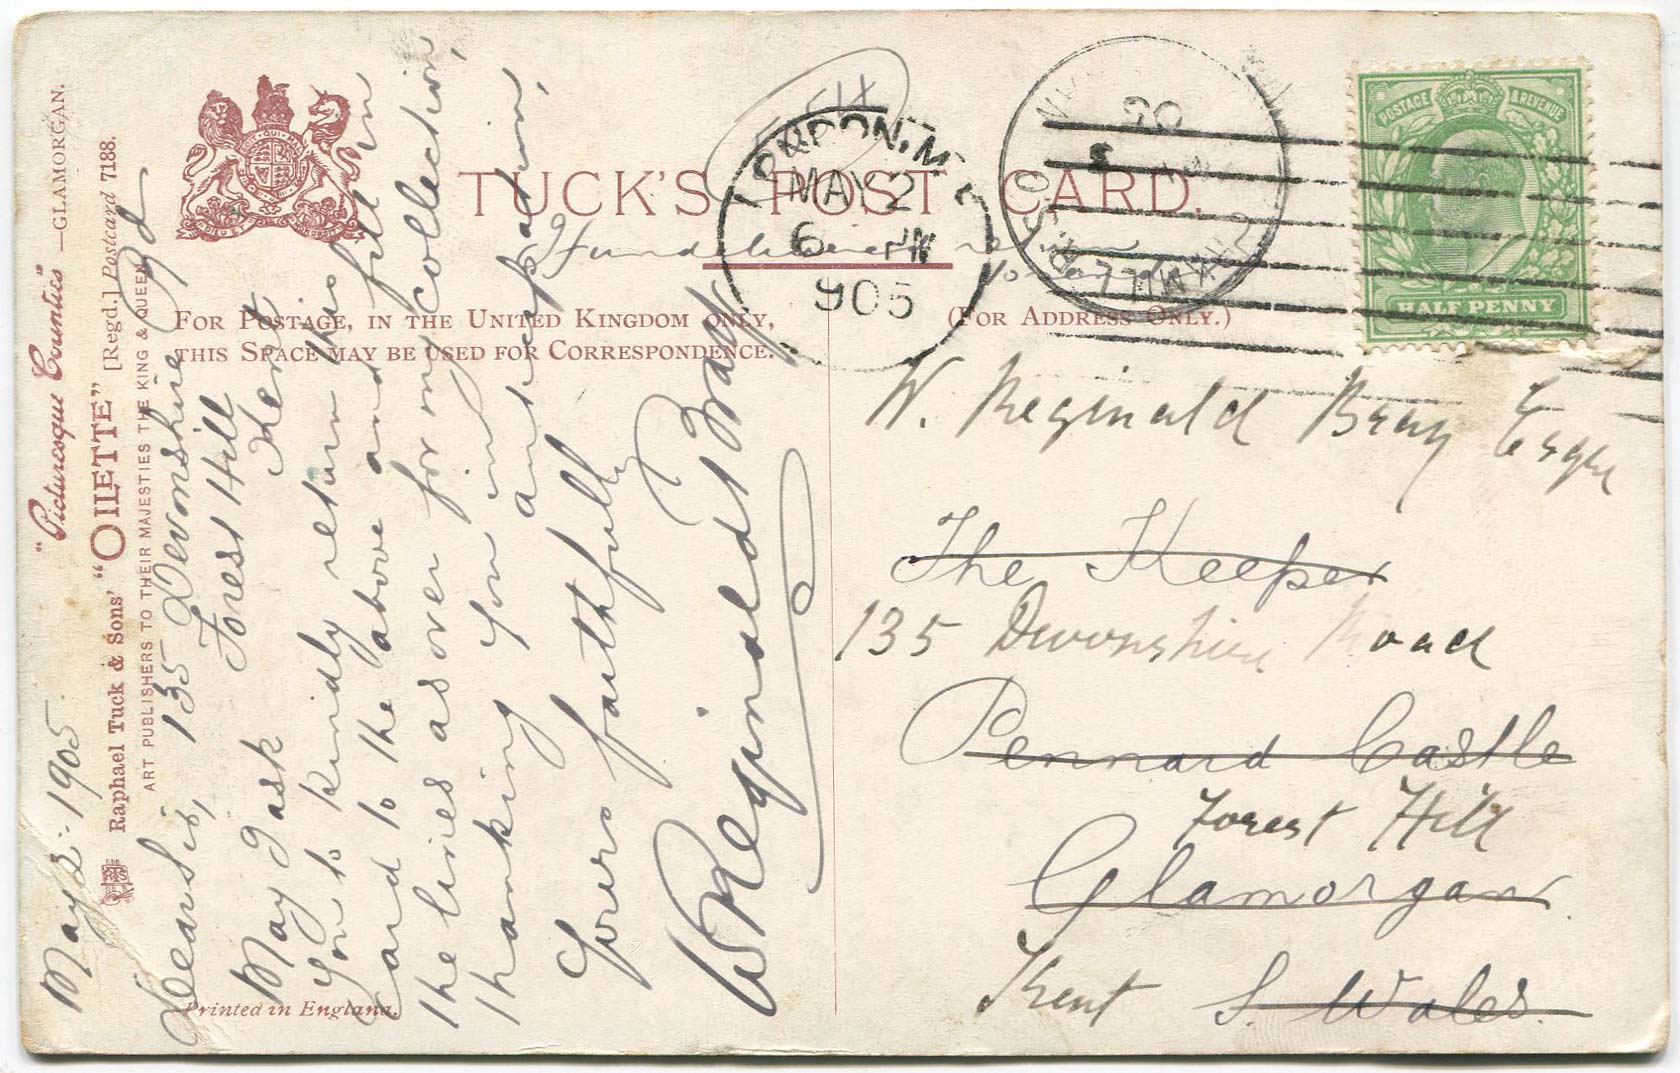 "Picturesque Counties" —GLAMORGAN.
Raphael Tuck & Sons' "OILETTE" [Regd.] Postcard 7188.
ART PUBLISHERS TO THEIR MAJESTIES THE KING & QUEEN.
TUCK'S POST CARD.
FOR POSTAGE, IN THE UNITED KINGDOM ONLY,
THIS SPACE MAY BE USED FOR CORRESPONDENCE.
(FOR ADDRESS ONLY.)
Printed in England.
May 2 · 1905.
Dear Sir, 135 Devonshire Rd
Forest Hill
Kent
May I ask
you to kindly return this
card to the above and fill in
the lines as over for my collection,
thanking you in
anticipation,
Yours faithfully
W Reginald Bray
LONDON.
MAY 2
6 PM
905
20
POSTAGE & REVENUE
HALF PENNY
W. Reginald Bray Esqre
The Keeper
135 Devonshire Road
Pennard Castle
Forest Hill
Glamorgan
Kent S. Wales.